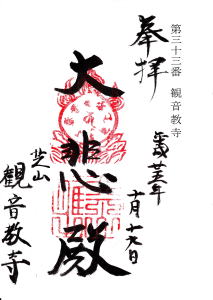 第三十三番 観音教寺
奉拝
平成廿五年
十月十六日
大悲殿
芝山
観音教寺